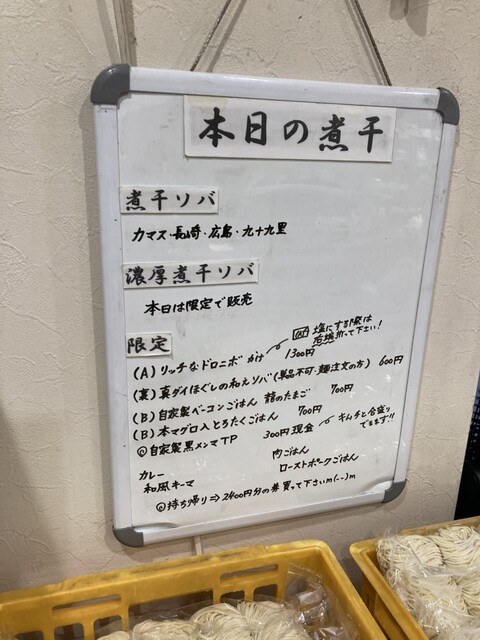 本日の煮干
煮干ソバ
カマス・長崎・広島・九十九里
濃厚煮干ソバ
本日は限定で販売
限定
塩にする際は
右塊折って下さい!
(A) リッチなドロニボかけ 1300円
(裏) 真ダイほぐしの和えソバ(単品不可・麺注文の方) 600円
(B) 自家製ベーコンごはん 諸のたまご 700円
(B) 本マグロ入とろたくごはん 700円
◎自家製黒メンマTP 300円現金
キムチと合盛り
できます!!
カレー 肉ごはん
和風キーマ ローストポークごはん
◎持ち帰り⇒2400円分の券買って下さいm(--)m